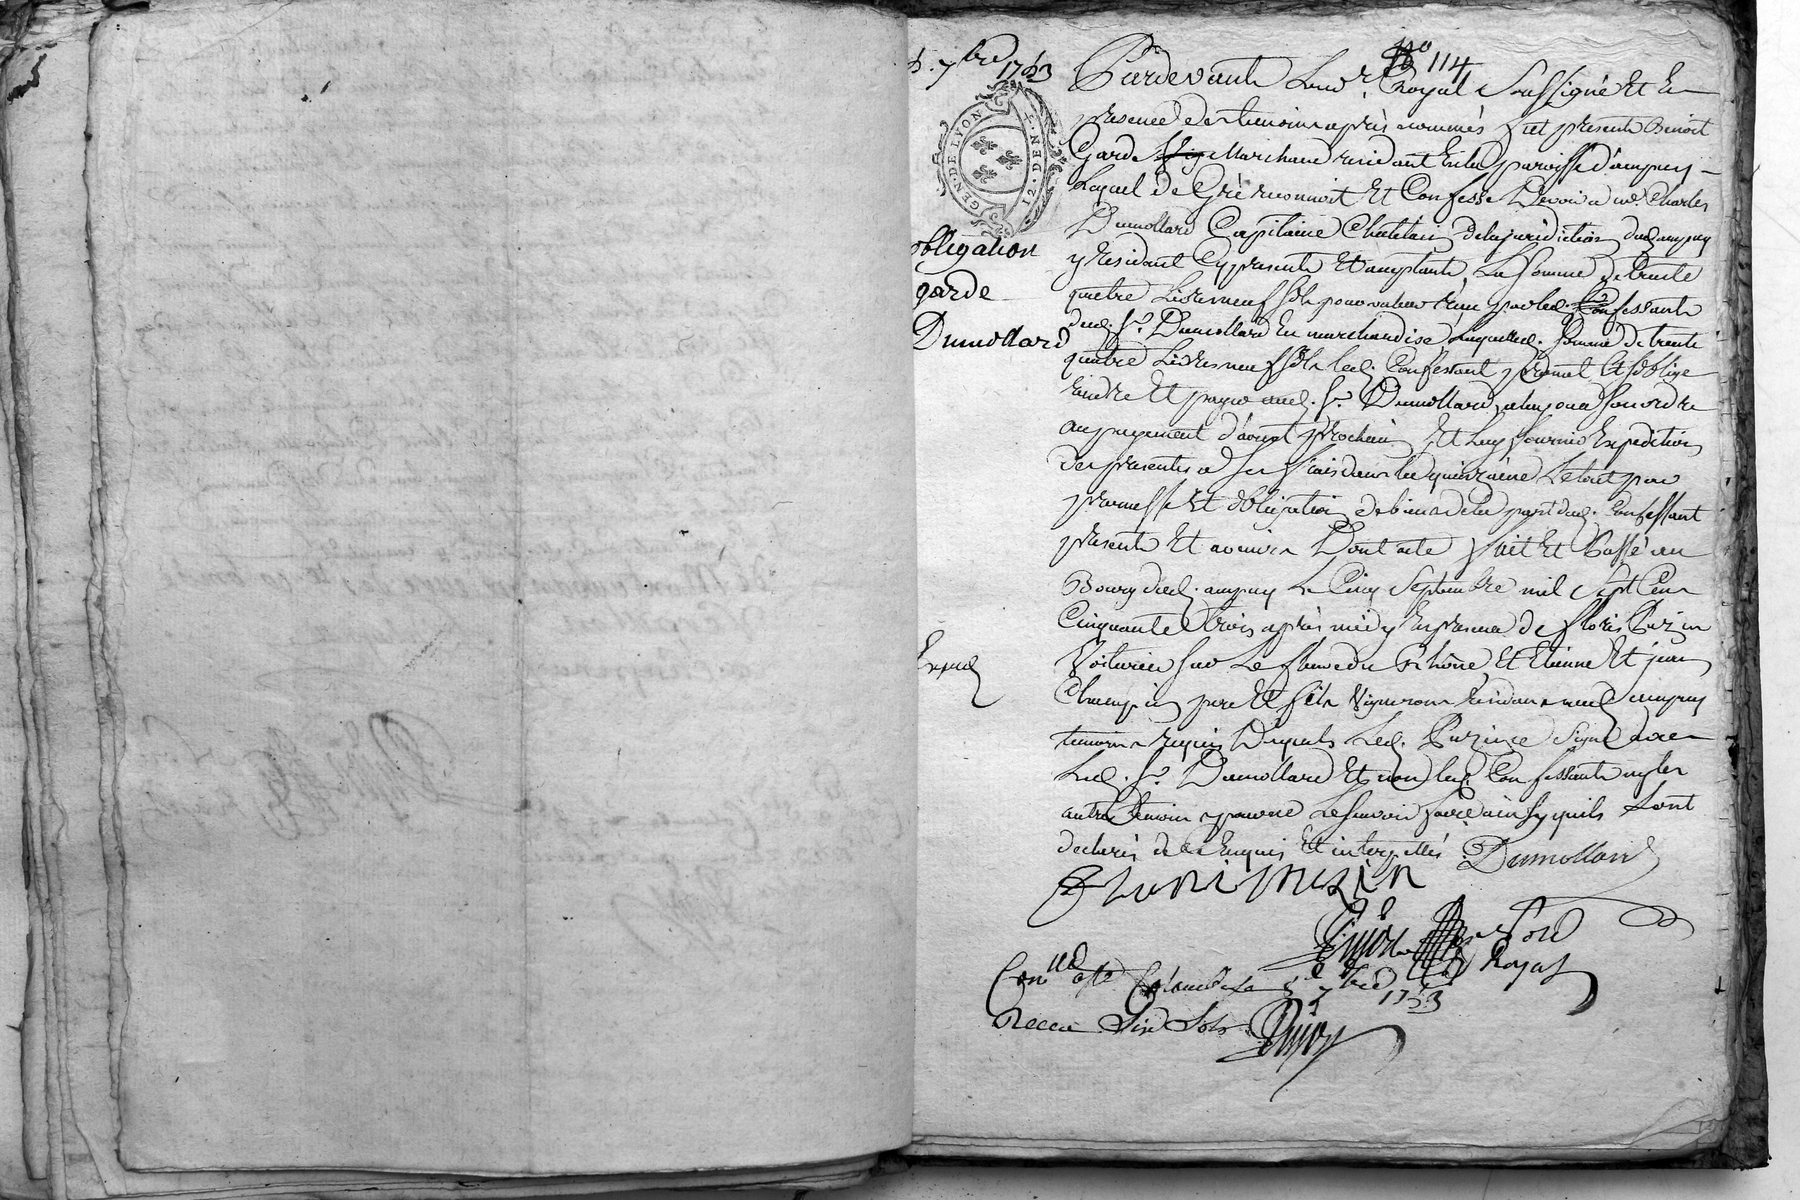 N° 114
5. 7bre 1753
GEN. DE LYON
12. DEN.
obligation
garde
Dumollard
Exped
Pardevant Le no.re Royal Soussigné et En
presence des temoins après nommés fut présent Benoit
Garde Marchand residant En la paroisse d'ampuy
Lequel de Gré reconnoit Et Confesse Devoir a me Charles
Dumollard Capitaine Chatelain de la juridiction dud. ampuy
y résidant Cy present Et acceptant La Somme de trente
quatre Livres neuf sols pour valeur reçue par led. Confessant
dud. Sr. Dumollard En marchandise, Laquelle somme de trente
quatre Livres neuf sols led. Confessant promet Et s'oblige
rendre Et payer aud. Sr. Dumollard ou a son ordre
au payement d'aoust prochain Et luy fournir Expedition
des presentes a ses frais dans la quinzaine Le tout par
promesse Et obligation de biens de la part dud. Confessant
presents Et avenir Dont acte fait Et Passé au
Bourg dud. ampuy Le Cinq Septembre mil Sept Cent
Cinquante trois après midy En presence de floris Puzin
Voiturier sur Le fleuve du Rhône, Et Etienne Et jean
Champin pere Et fils Vignerons residants aud. ampuy
temoins requis Desquels Led. Puzin a Signé avec
Led. Sr. Dumollard Et non led. Confessant ny les
autres temoins pour ne Le savoir faire ainsy quils sont
declarés de ce Enquis Et interpellés. Dumollard
Flori pusin
Royal
Con.llé à Ste Colombe le 5e 7bre 1753
Receu Six Sols